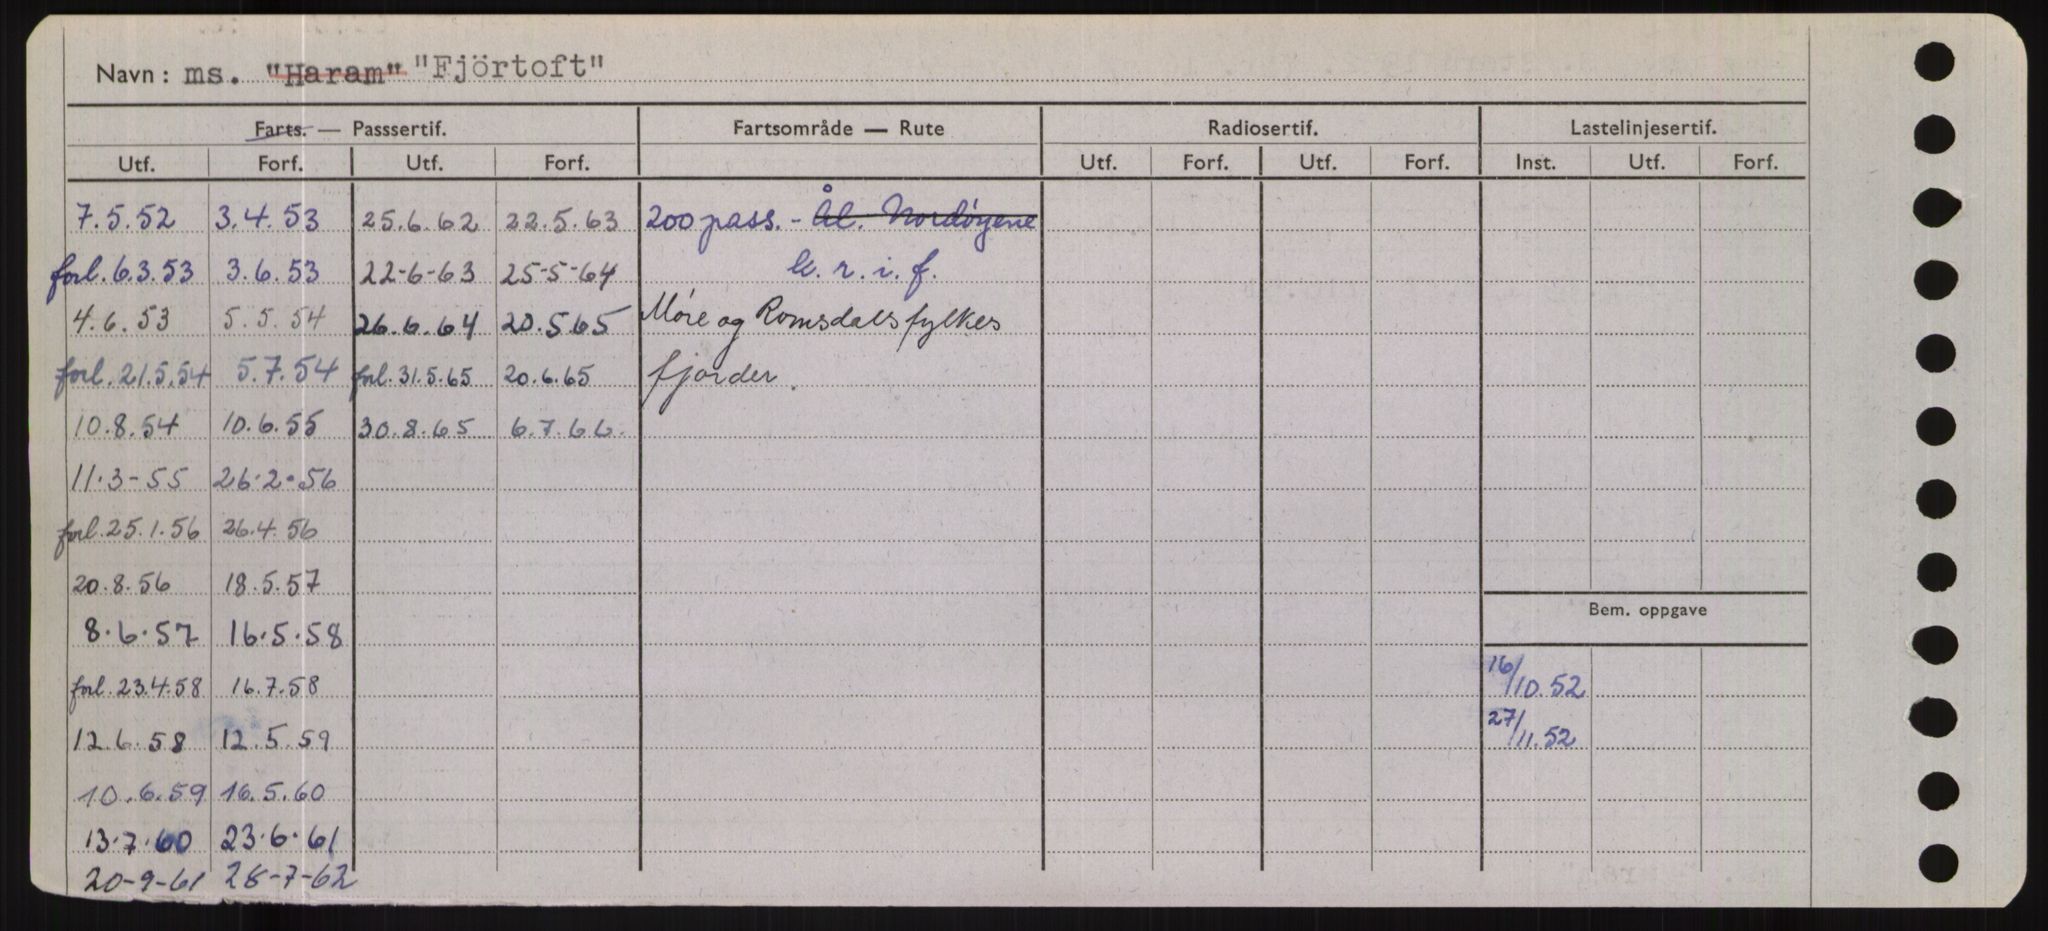 Navn: ms. "Haram" "Fjörtoft"
Farts. — Passsertif. Fartsområde — Rute Radiosertif. Lastelinjesertif.
Utf. Forf. Utf. Forf. Utf. Forf. Utf. Forf. Inst. Utf. Forf.
7.5.52 3.4.53 25.6.62 22.5.63 200 pass. - Ål. Nordøyene
forl. 6.3.53 3.6.53 22-6-63 25-5-64 k. r. i. f.
4.6.53 5.5.54 26.6.64 20.5.65 Møre og Romsdals fylkes
forl. 21.5.54 5.7.54 forl. 31.5.65 20.6.65 fjorder.
10.8.54 10.6.55 30.8.65 6.7.66.
11.3-55 26.2.56
forl. 25.1.56 26.4.56
20.8.56 18.5.57
Bem. oppgave
8.6.57 16.5.58
forl. 23.4.58 16.7.58 16/10.52
12.6.58 12.5.59 27/11.52
10.6.59 16.5.60
13.7.60 23.6.61
20-9-61 28-7-62